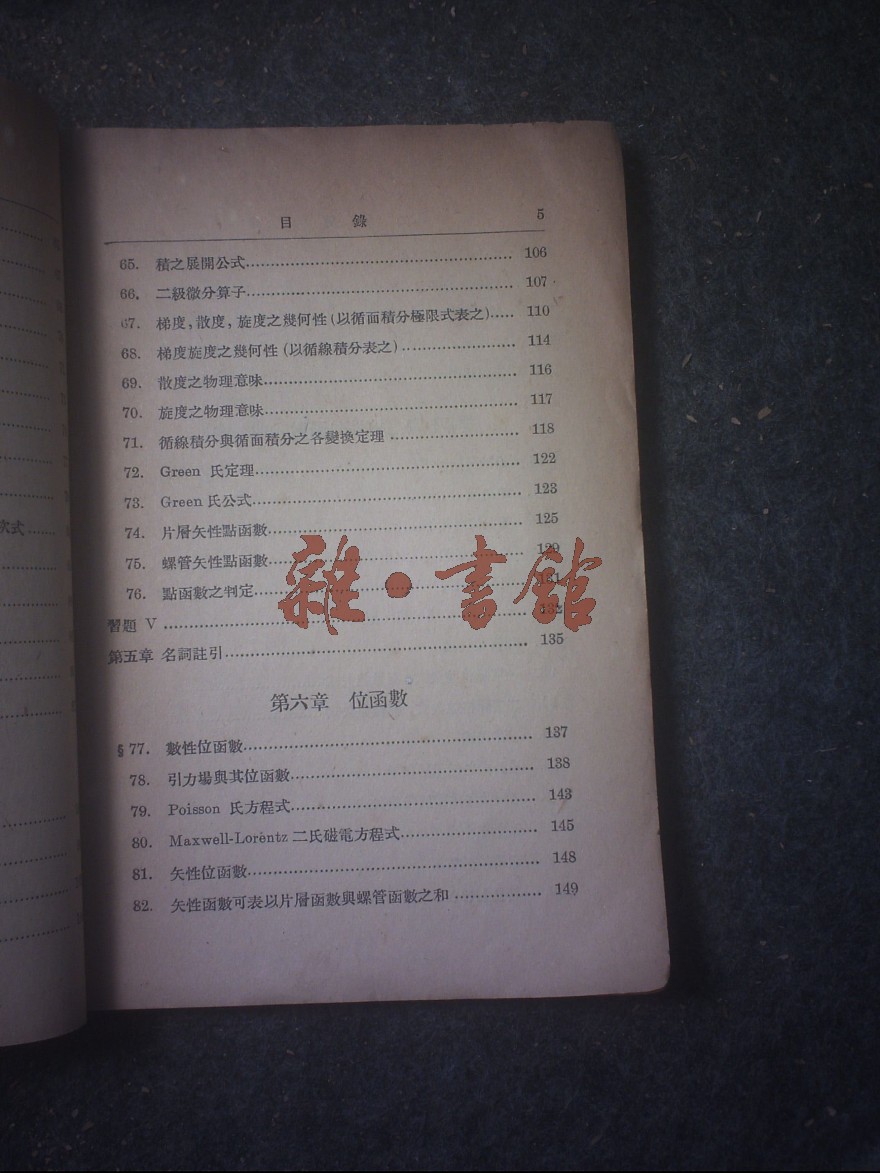 目 錄 5
65. 積之展開公式 106
66. 二級微分算子 107
67. 梯度,散度,旋度之幾何性(以循面積分極限式表之) 110
68. 梯度旋度之幾何性(以循線積分表之) 114
69. 散度之物理意味 116
70. 旋度之物理意味 117
71. 循線積分與循面積分之各變換定理 118
72. Green 氏定理 122
73. Green 氏公式 123
74. 片層矢性點函數 125
75. 螺管矢性點函數 129
76. 點函數之判定 131
習題 V 132
第五章 名詞註引 135
雜·書館
第六章 位函數
§77. 數性位函數 137
78. 引力場與其位函數 138
79. Poisson 氏方程式 143
80. Maxwell-Lorentz 二氏磁電方程式 145
81. 矢性位函數 148
82. 矢性函數可表以片層函數與螺管函數之和 149
次式